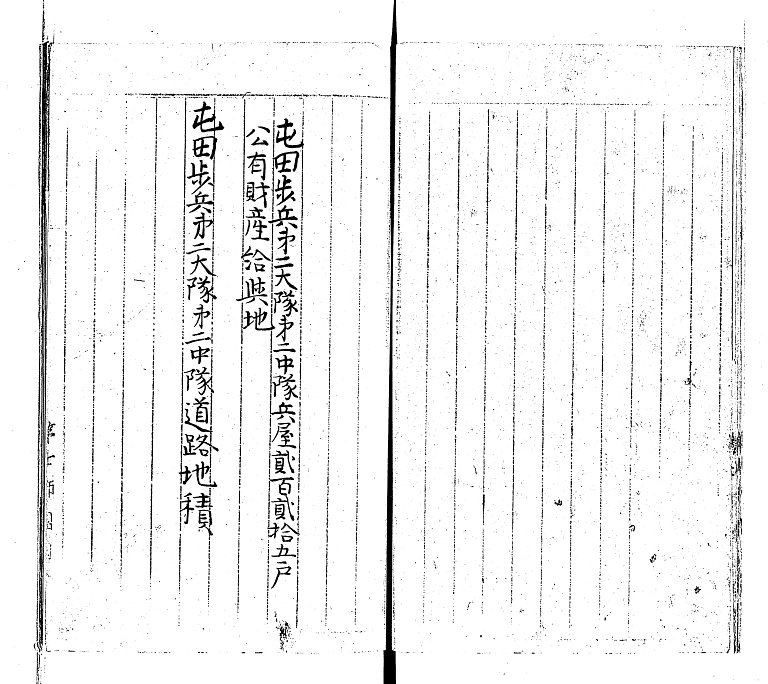 屯田歩兵㐧二大隊㐧二中隊兵屋貳百貳拾五戸
公有財産給與地
屯田歩兵㐧二大隊㐧二中隊道路地積